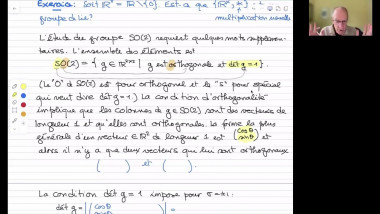 Exercice: Soit ℝ* = ℝ \ {0}. Est-ce que {ℝ*, *}
groupe de Lie? multiplication usuelle
L'étude du groupe SO(2) requiert quelques mots supplémen-
taires. L'ensemble des éléments est
SO(2) = { g ∈ ℝ²ˣ² | g est orthogonale et dét g = 1 }.
(Le "O" de SO(2) est pour orthogonal et le "S" pour spécial
qui veut dire dét g = 1.) La condition d'orthogonalité
implique que les colonnes de g ∈ SO(2) sont des vecteurs de
longueur 1 et qu'elles sont orthogonales. La forme la plus
générale d'un vecteur ∈ ℝ² de longueur 1 est (cos θ sin θ) et
alors il n'y a que deux vecteurs qui lui sont orthogonaux
( ) et ( ).
La condition dét g = 1 impose pour
dét g = |(cos θ sin θ)| =